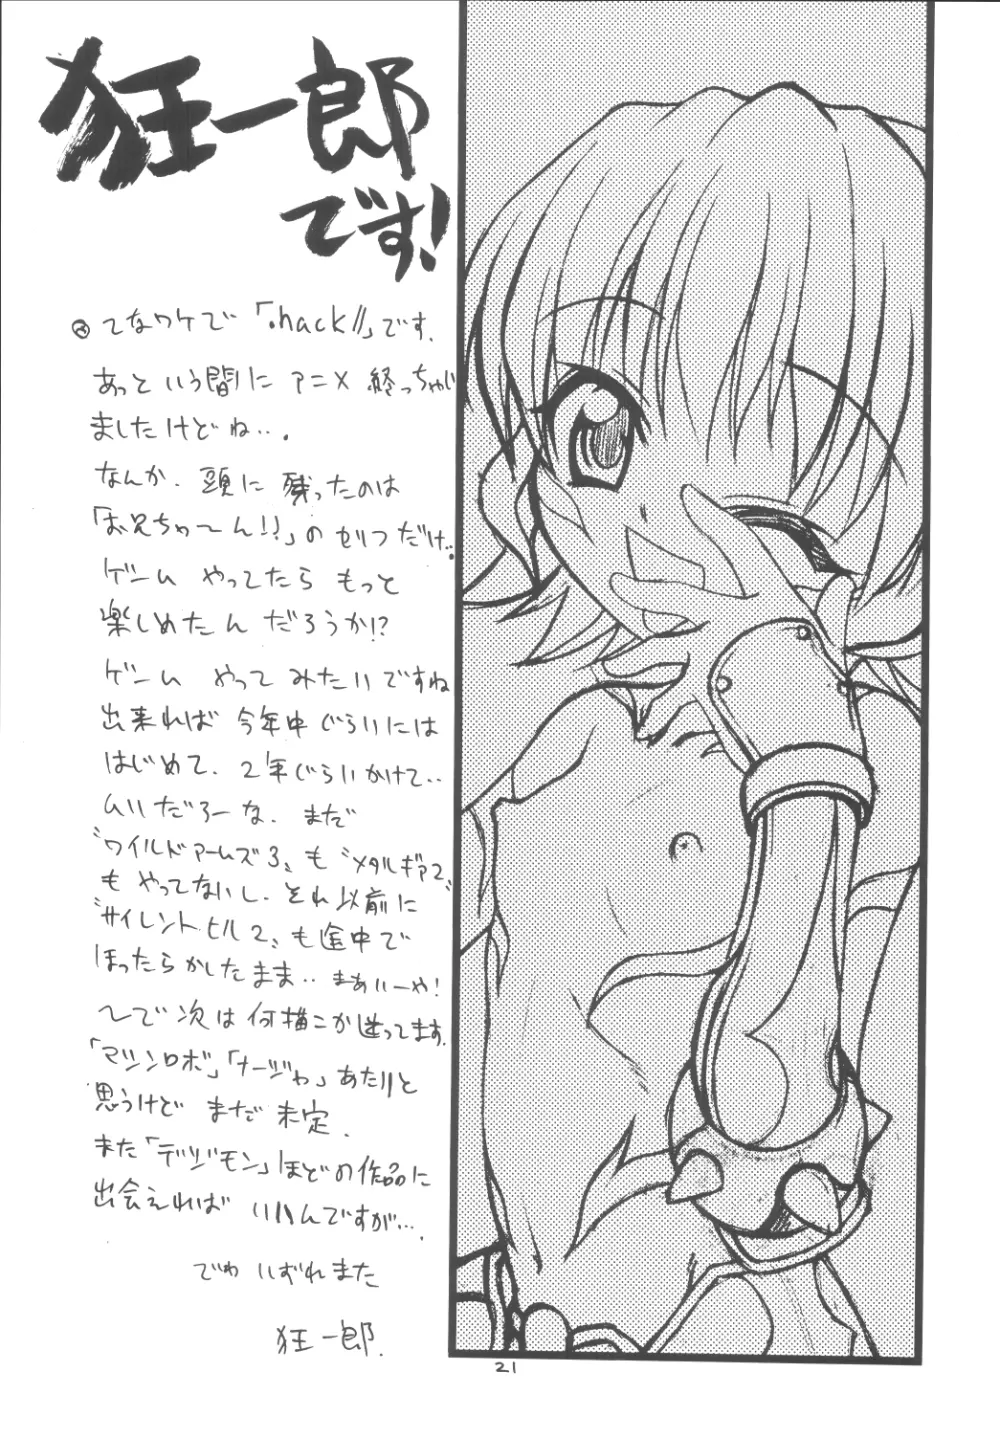 狂一郎
です!
てなワケで「.hack//」です.
あっという間に アニメ 終っちゃい
ましたけどね...
なんか. 頭に 残ったのは
「お兄ちゃ〜ん!!」の セリフだけ..
ゲーム やってたら もっと
楽しめたんだろうか!?
ゲーム やって みたいですね
出来れば 今年中ぐらいには
はじめて. 2年ぐらいかけて..
ムリだろーな. まだ
〝ワイルドアームズ3〟も〝メタルギア2〟
も やってないし. それ以前に
〝サイレントヒル2〟も途中で
ほったらかしたまま.. まあいーや!
〜で次は何描こか迷ってます.
「マシンロボ」「ナージャ」あたりと
思うけど まだ 未定.
また「デジモン」ほどの作品に
出会えれば いいんですが....
でわ いずれまた
狂一郎.
21